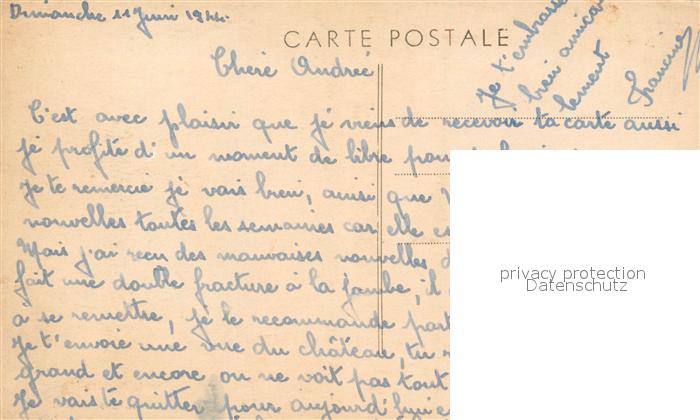 Dimanche 11 Juin 1944
CARTE POSTALE
Cheré Andreé
C'est avec plaisir que jé viens de recevoir ta carte aussi
jé profite d'un moment de libre pour
Je te remercie jé vais bien, ainsi que
nouvelles toutes les semaines car elle
Mais j'ai recu des mauvaises nouvelles
fait une double fracture à la jambe, il
à se remettre, jé le recommande
Je t'envoie une vue du château, tu
grand et encore on ne voit pas tout
Je vais te quitter pour aujourd'hui
Je t'embrasse
bien amica
lement
Francine
privacy protection
Datenschutz